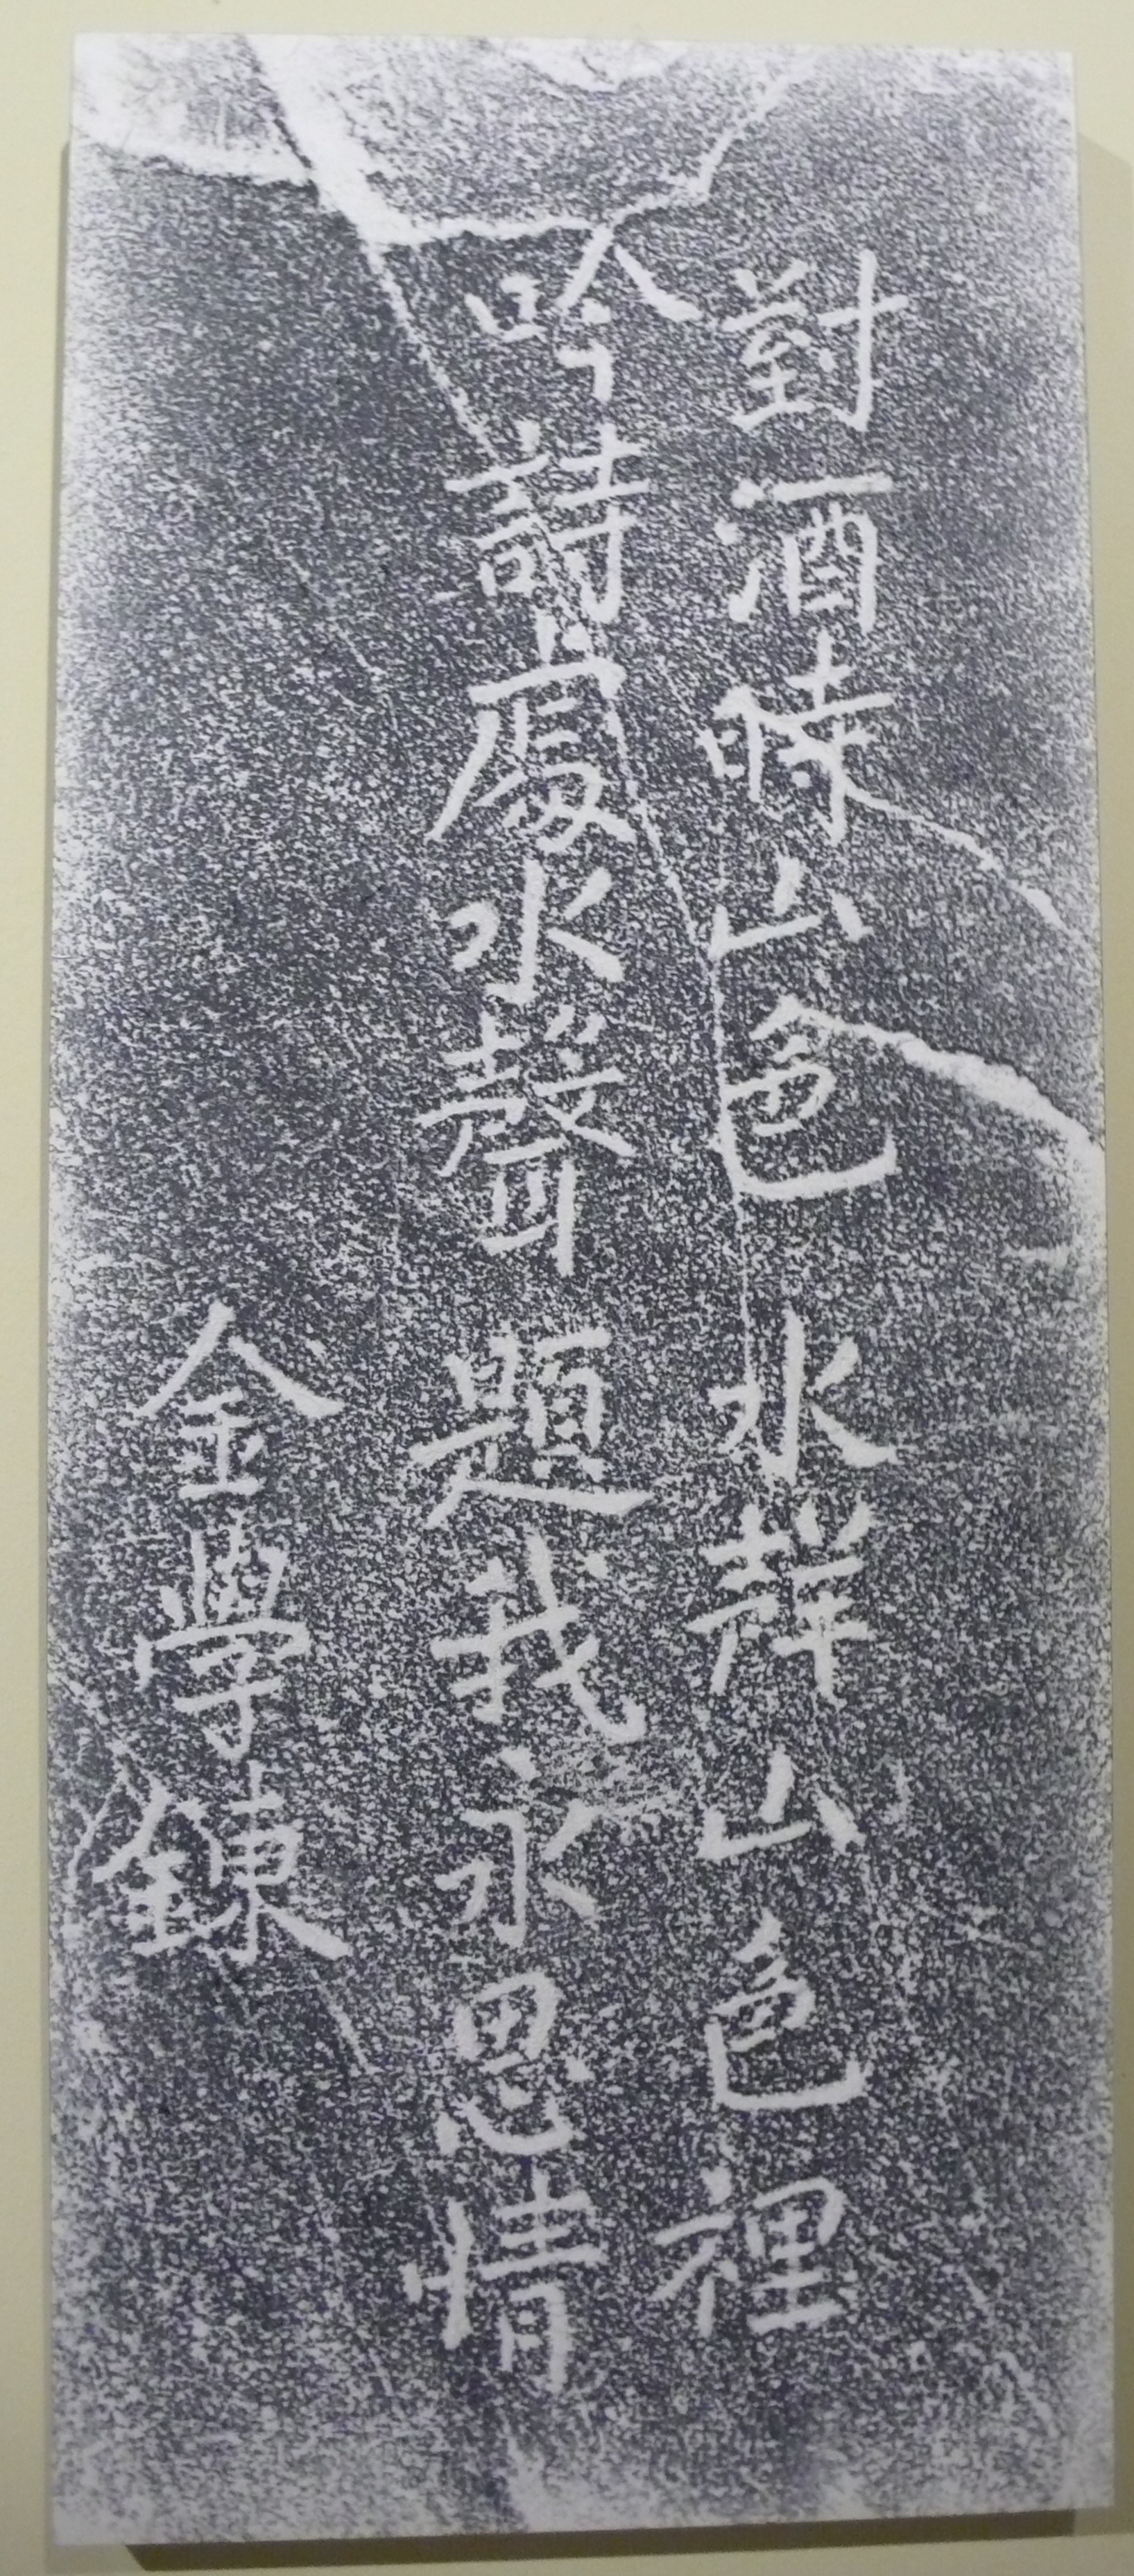 對酒時山色 水聲山色裡
吟詩處水聲 題我永思情
金學鍊